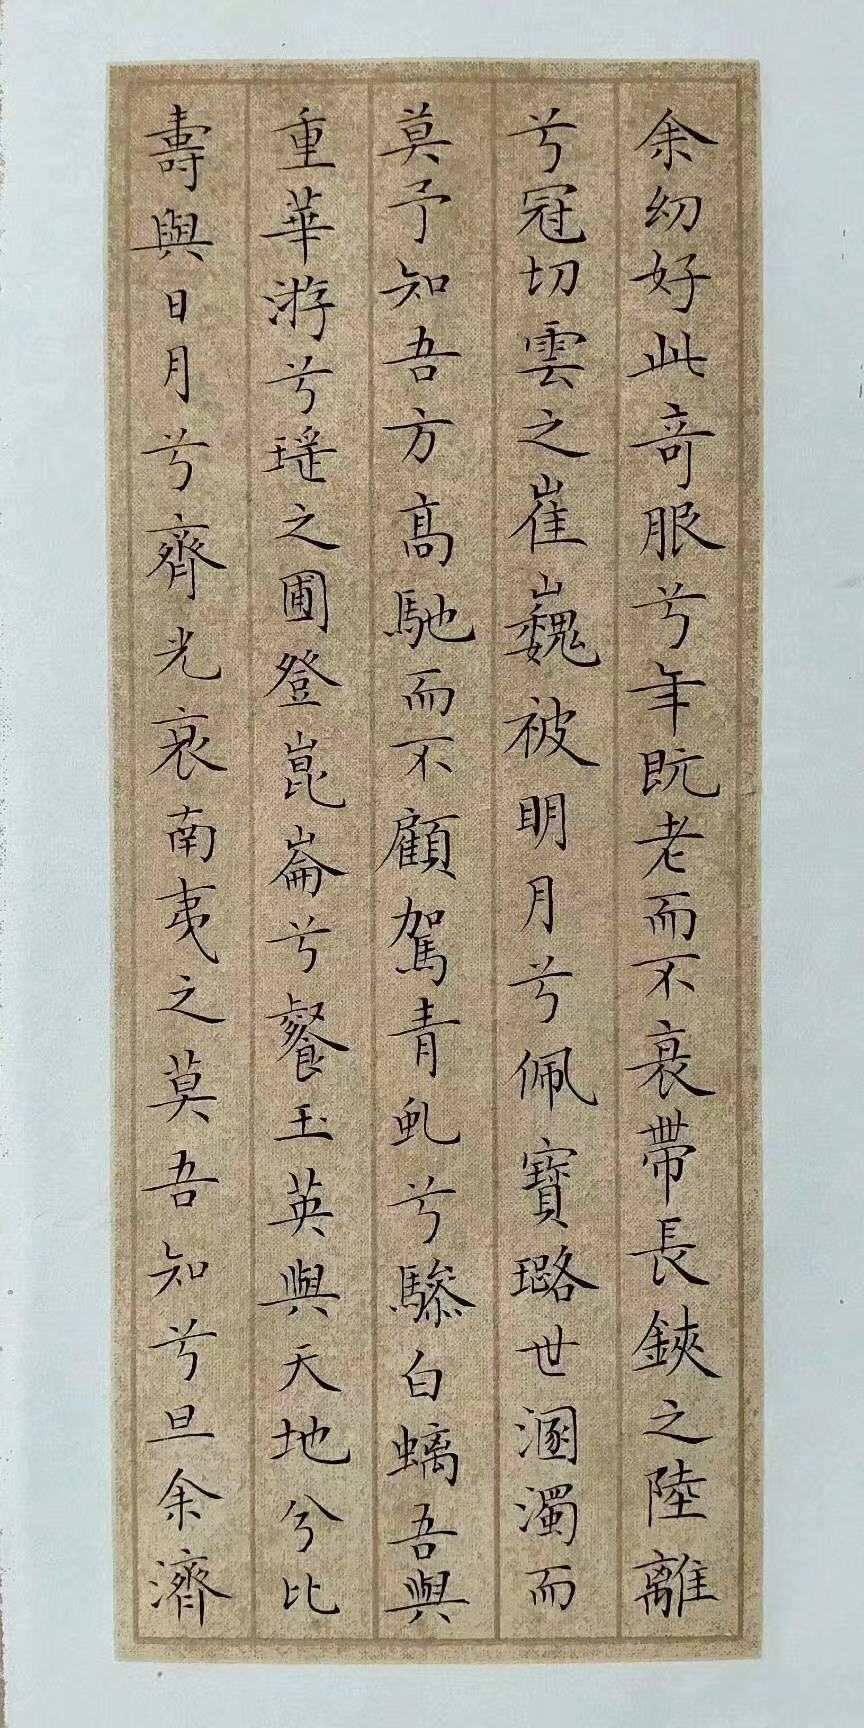 余幼好此奇服兮年既老而不衰帶長鋏之陸離
兮冠切雲之崔巍被明月兮佩寶璐世溷濁而
莫予知吾方高馳而不顧駕青虬兮驂白螭吾與
重華游兮瑤之圃登崑崙兮餐玉英與天地兮比
壽與日月兮齊光哀南夷之莫吾知兮旦余濟